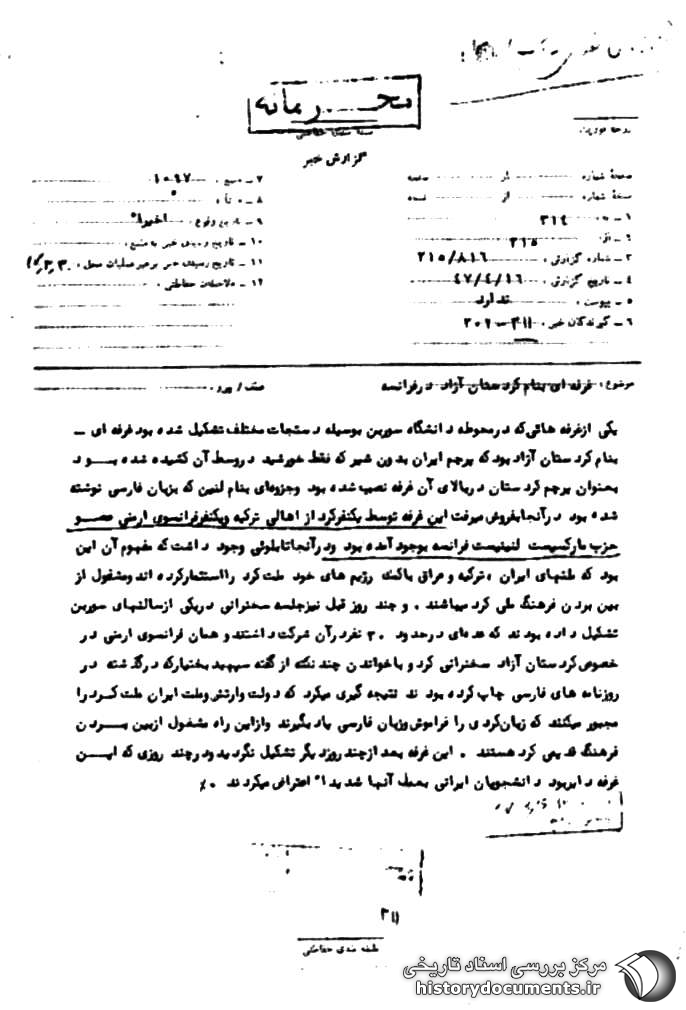 محرمانه
گزارش خبر
درجه فوریت
صفحهٔ شماره از صفحه
نسخهٔ شماره از نسخه
۱ ـ به ۳۱٤
۲ ـ از ۳۱۵
۳ ـ شماره گزارش ۲۱۵/۸۱۶
۴ ـ تاریخ گزارش ۴۷/۴/۱۶
۵ ـ پیوست ندارد
۶ ـ گیرندگان خبر ۳۱۱ـ۳۰۲
۷ ـ منبع ۱۰۶۷
۸ ـ منشأ
۹ ـ تاریخ وقوع اخیراً
۱۰ ـ تاریخ رسیدن خبر به منبع
۱۱ ـ تاریخ رسیدن خبر برهبر عملیات محل
۱۲ ـ ملاحظات حفاظتی
موضوع: غرفه ای بنام کردستان آزاد درفرانسه
عطف / پیرو
یکی ازغرفه هائی که درمحوطه دانشگاه سوربن بوسیله دستجات مختلف تشکیل شده بود غرفه ای ـ
بنام کردستان آزاد بود که پرچم ایران بدون شیر که فقط خورشید دروسط آن کشیده شده بود
بعنوان پرچم کردستان دربالای آن غرفه نصب شده بود وجزوه‌ای بنام لنین که بزبان فارسی نوشته
شده بود درآنجا بفروش میرفت این غرفه توسط یکنفرکرد از اهالی ترکیه ویکنفرفرانسوی ارمنی عضو
حزب مارکسیست لنینیست فرانسه بوجود آمده بود ودرآنجا تابلوئی وجود داشت که مفهوم آن این
بود که ملتهای ایران ، ترکیه و عراق باکمک رژیم های خود ملت کرد را استثمارکرده اند ومشغول از
بین بردن فرهنگ ملی کرد میباشند . و چند روز قبل نیزجلسه سخنرانی دریکی ازسالنهای سوربن
تشکیل داده بودند که عده‌ای درحدود ۲۰ نفردرآن شرکت داشتند و همان فرانسوی ارمنی در
خصوص کردستان آزاد سخنرانی کرد و باخواندن چند نکته از گفته سپهبد بختیارکه درگذشته در
روزنامه های فارسی چاپ کرده بودند نتیجه گیری میکرد که دولت وارتش وملت ایران ملت کرد را
مجبور میکنند که زبان کردی را فراموش وزبان فارسی یاد بگیرند وازاین راه مشغول ازبین بردن
فرهنگ قدیمی کرد هستند . این غرفه بعد ازچند روزدیگر تشکیل نگردید ودرچند روزی که این
غرفه دایربود دانشجویان ایرانی بعمل آنها شدیداً اعتراض میکردند
۳۱۱
طبقه بندی حفاظتی
مرکز بررسی اسناد تاریخی
historydocuments.ir